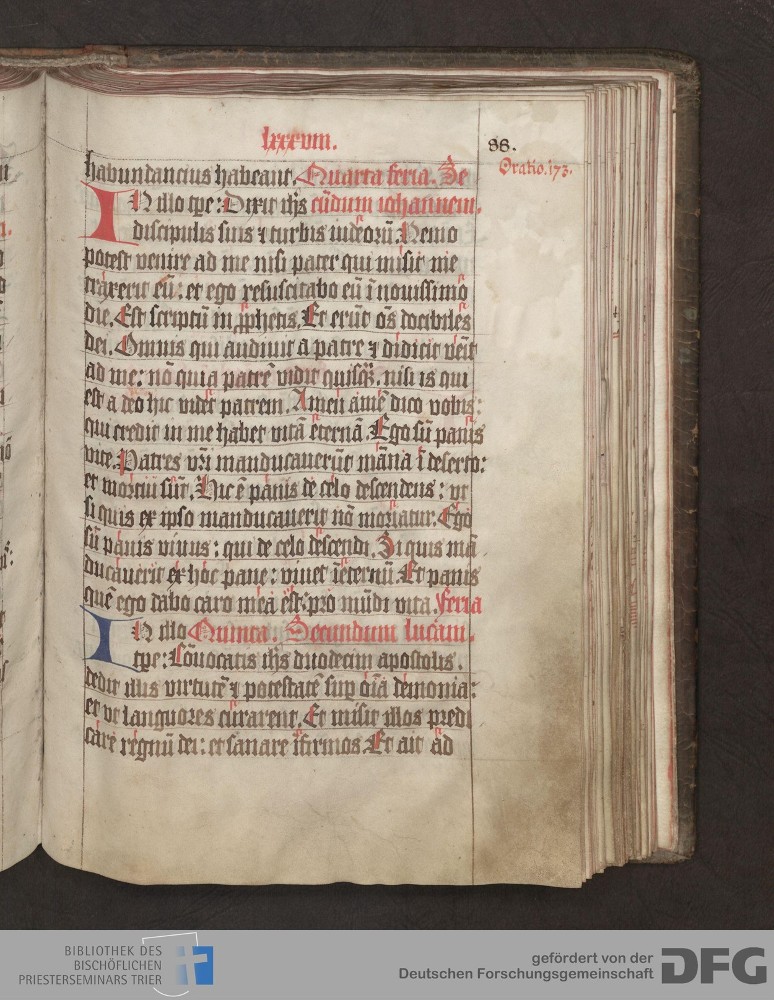 lxxxviii.
88.
Oratio. 173.
habundancius habeant. Quarta feria. Se
IN illo tp̄e: Dixit ih̄s cūdum iohannem.
discipulis suis ⁊ turbis iudeoꝝ̄. Nemo
potest venire ad me nisi pater qui misit me
traxerit eū: et ego resuscitabo eū ī nouissimo
die. Est scriptū in ꝓphetis. Et erūt oēs docibiles
dei. Omnis qui audiuit a patre ⁊ didicit venīt
ad me: nō quia patrē vidit quisqꝫ. nisi is qui
est a deo hic videt patrem. Amen amē dico vobis:
qui credit in me habet vitā eternā. Ego sū panis
vite. Patres vr̄i manducauerūt manna ī deserto:
et mortui sūt. Hic ē panis de celo descendens: vt
si quis ex ipso manducauerit nō moriatur. Ego
sū panis viuus: qui de celo descendi. Si quis mā
ducauerit ex hoc pane: viuet ī eternū. Et panis
quē ego dabo caro mea est: pro mūdi vita. Feria
IN illo Quinta. Secundum lucam.
tp̄e: Cōuocatis ih̄s duodecim apostolis.
dedit illis virtutē ⁊ potestatē sup oīa demonia:
et vt languores curarent. Et misit illos predi
care regnū dei: et sanare īfirmos. Et ait ad
BIBLIOTHEK DES
BISCHÖFLICHEN
PRIESTERSEMINARS TRIER
gefördert von der
Deutschen Forschungsgemeinschaft
DFG